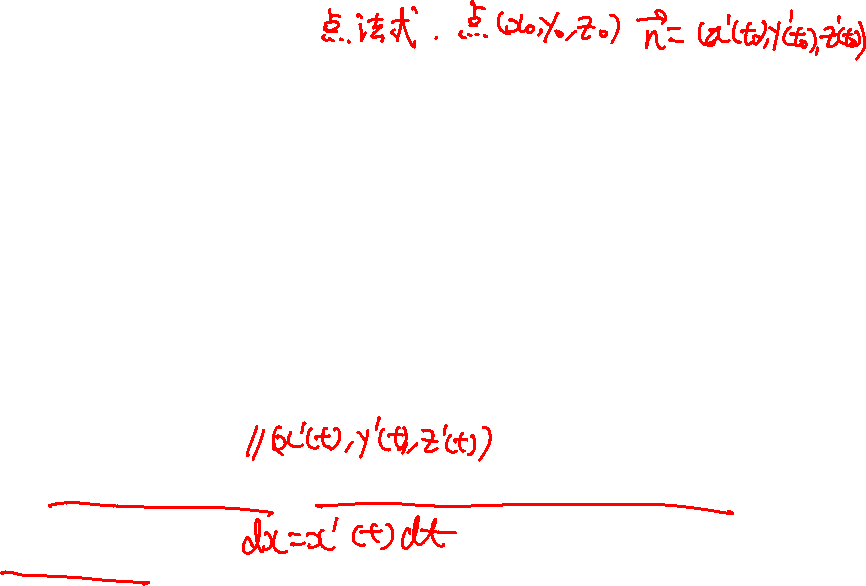 点法式. 点(x₀,y₀,z₀) n⃗=(x'(t₀),y'(t₀),z'(t₀))
//(x'(t),y'(t),z'(t))
dx=x'(t)dt